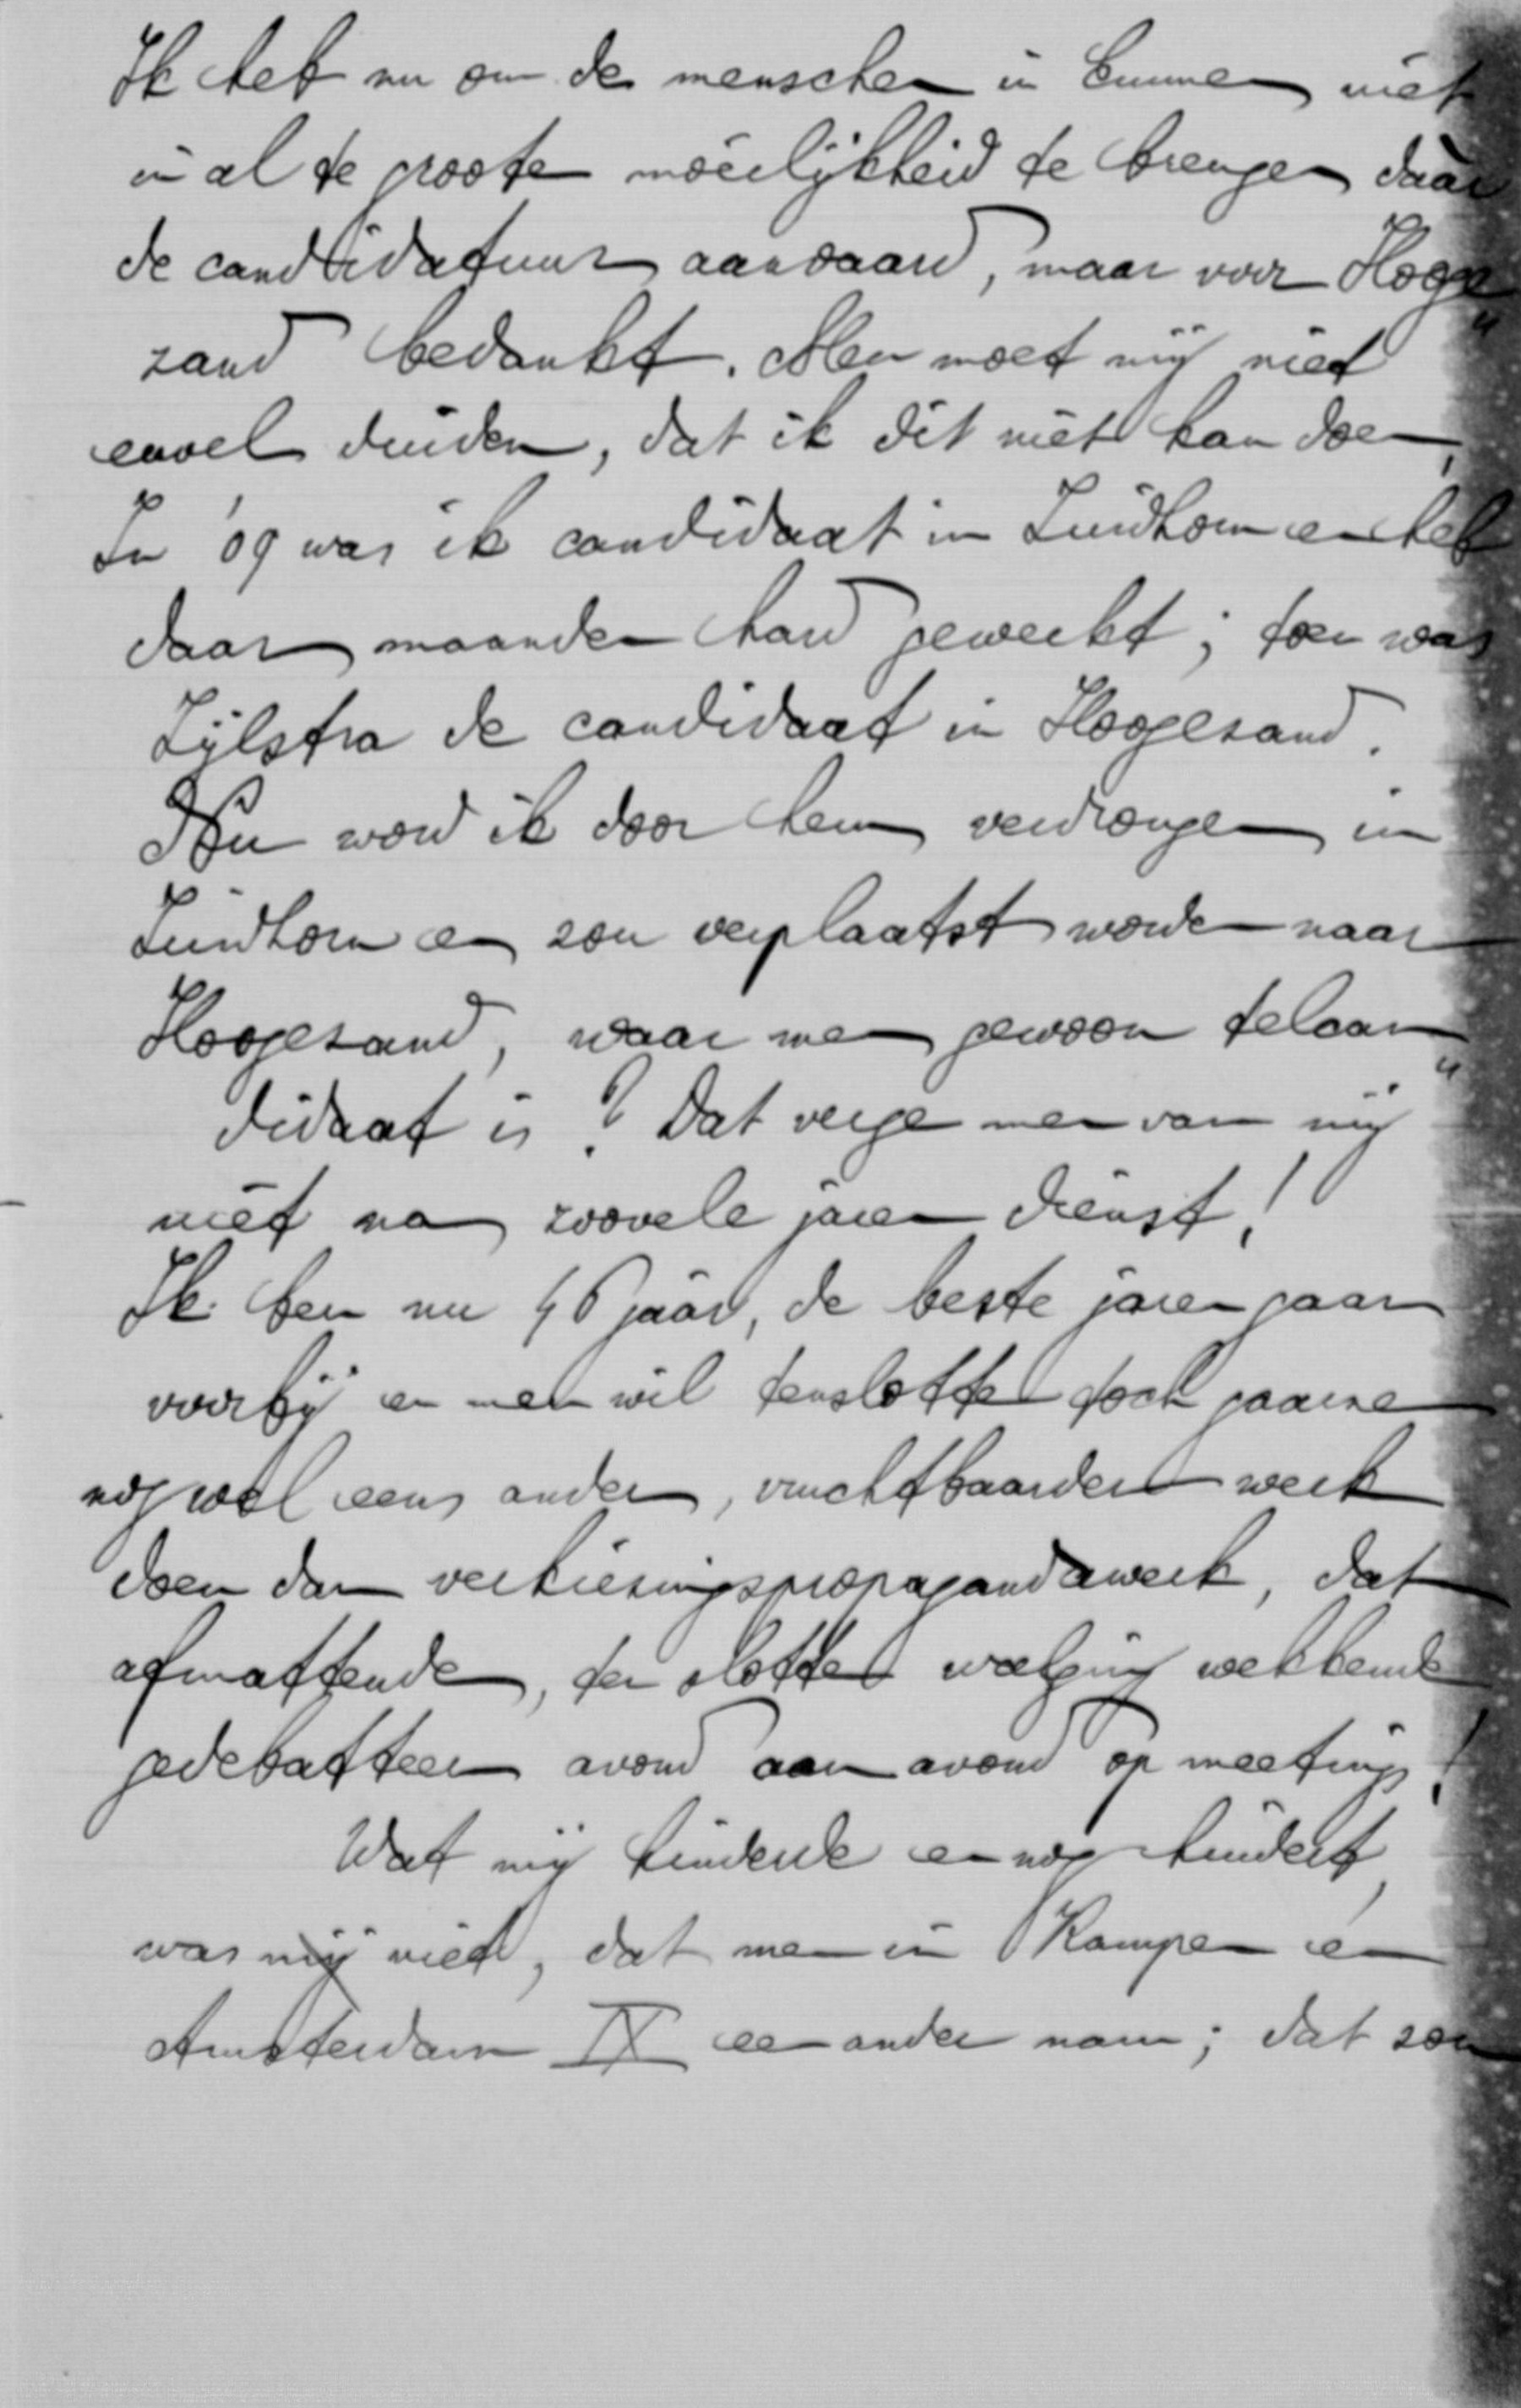 Ik heb nu om de menschen in Emmen niet
in al te groote moeilijkheid te brengen daar
de candidatuur aanvaard, maar voor Hooge"
zand bedankt. Men moet mij niet
euvel duiden, dat ik dit niet kan doen,
In '09 was ik candidaat in Zuidhorn en heb
daar maanden hard gewerkt; toen was
Zijlstra de candidaat in Hoogezand.
Nu word ik door hem verdrongen in
Zuidhorn en zou verplaatst worden naar
Hoogezand, waar men gewoon telcan"
didaat is? Dat verge men van mij
niet na zoovele jaren dienst!
Ik ben nu 46 jaar, de beste jaren gaan
voorbij en men wil tenslotte toch gaarne
nog wel eens ander, vruchtbaarder werk
doen dan verkiezingspropagandawerk, dat
afmattende, ten slotte walging wekkende
gedebatteer avond aan avond op meetings!
Wat mij hinderde en nog hindert,
was mij niet, dat men in Kampen en
Amsterdam IX een ander nam; dat zou